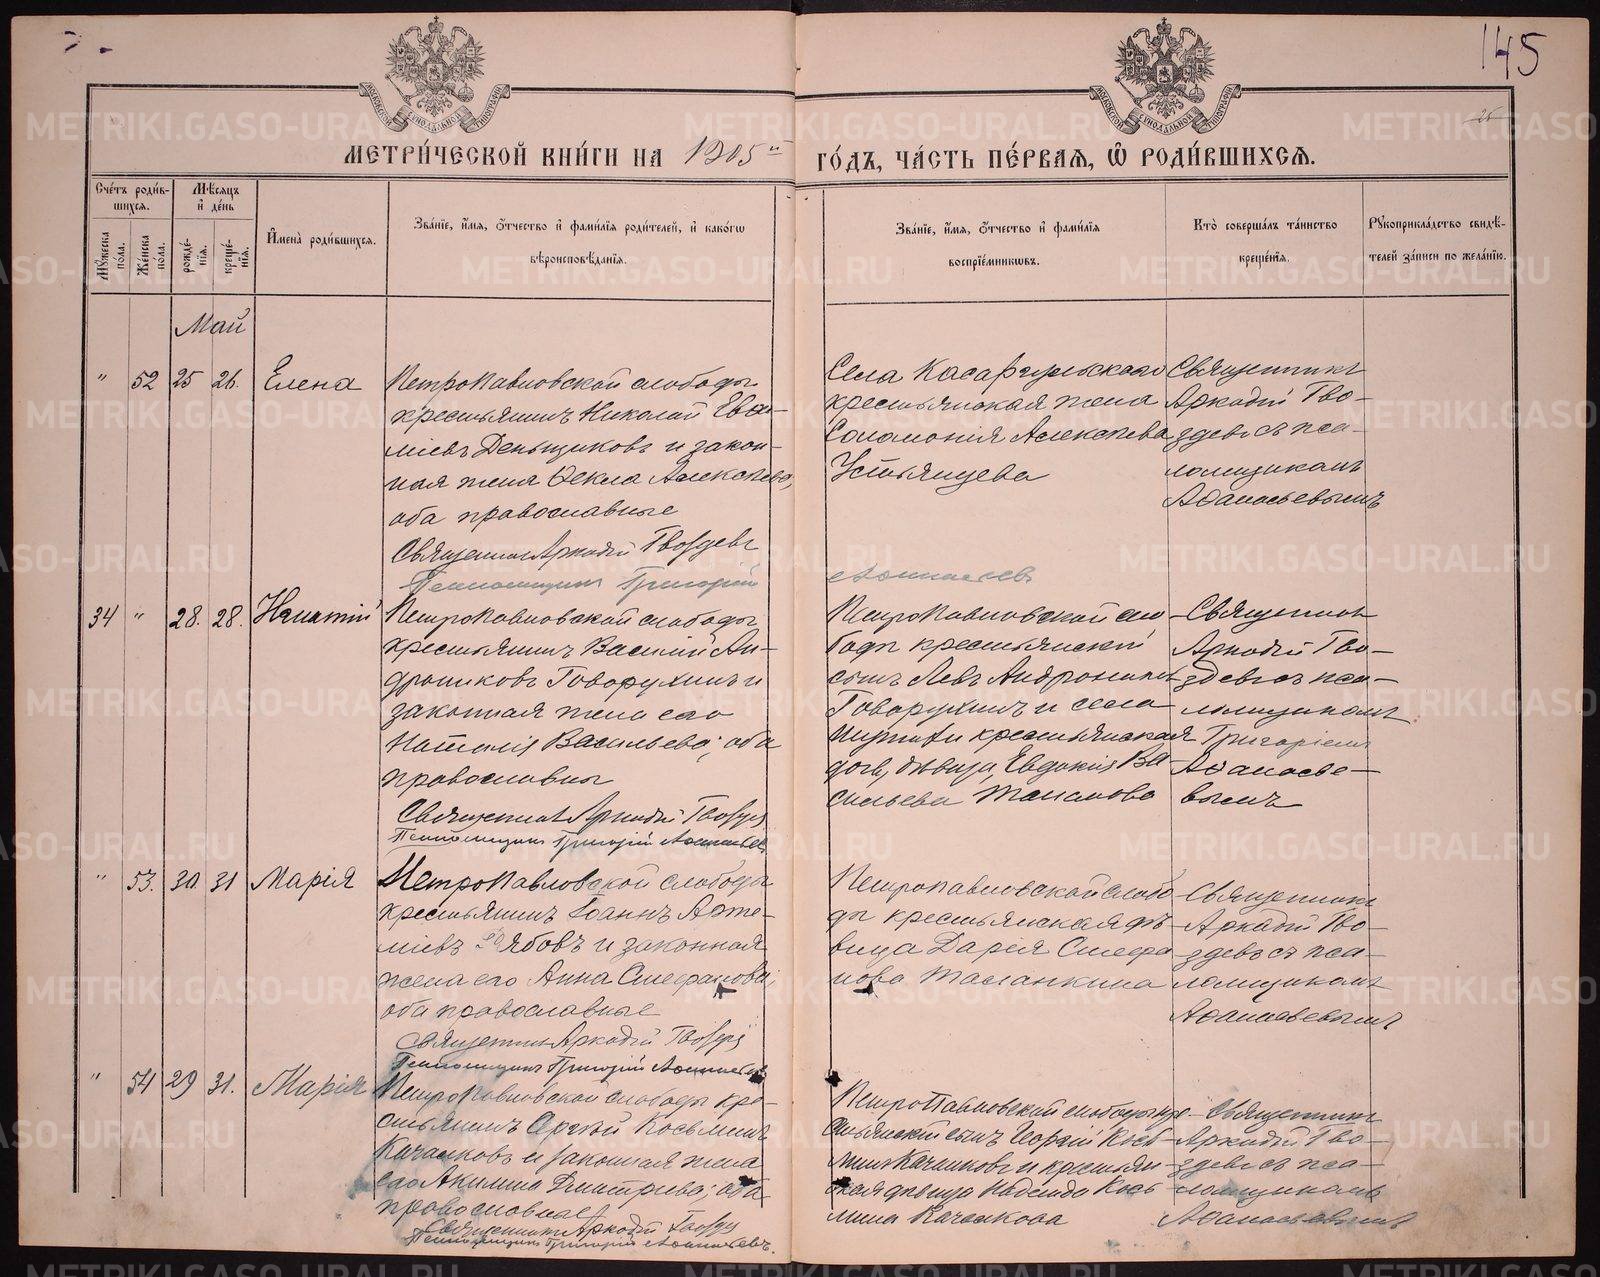 145
25
МЕТРИ́ЧЕСКОЙ КНИ́ГИ НА 1905й ГО́ДЪ, ЧА́СТЬ ПЕ́РВАЯ, Ѽ РОДИ́ВШИХСЯ.
Сче́тъ роди́в-
шихся.
Мѣ́сяцъ
и́ де́нь
Му́жеска
по́ла.
Же́нска
по́ла.
рожде́-
нїя.
креще́-
нїя.
И҆мена̀ роди́вшихся.
Зва́нїе, и҆́мя, ѻ҆́тчество и҆ фами́лїя роди́телей, и҆ како́гѡ
вѣроисповѣ́данїя.
Зва́нїе, и҆́мя, ѻ҆́тчество и҆ фами́лїя
воспрїе́мникѡвъ.
Кто̀ соверша́лъ та́инство
креще́нїя.
Рукоприкла́дство свидѣ́-
телей за́писи по жела́нїю.
Май
" 52 25 26. Елена
Петропавловской слободы
крестьянинъ Николай Евѳи-
міевъ Деньщиковъ и закон-
ная жена Ѳекла Алексѣева,
оба православные
Священникъ Аркадій Гвоздевъ
Псаломщикъ Григорій Аѳанасьевъ
Села Касаргульскаго
крестьянская жена
Соломонія Алексѣева
Устьянцева
Священникъ
Аркадій Гво-
здевъ съ пса-
ломщикомъ
Аѳанасьевымъ
34 " 28. 28. Игнатій
Петропавловской слободы
крестьянинъ Василій Ан-
дрониковъ Говорухинъ и
законная жена его
Наталія Васильева, оба
православны
Священникъ Аркадій Гвоздевъ
Псаломщикъ Григорій Аѳанасьевъ
Петропавловской сло
боды крестьянскій
сынъ Левъ Андрониковъ
Говорухинъ и села
крестьянская
дочь, дѣвица, Евдокія Ва-
сильева
Священникъ
Аркадій Гво-
здевъ съ пса-
ломщикомъ
Григоріемъ
Аѳанасье-
вымъ
" 53. 30. 31 Марія
Петропавловской слободы
крестьянинъ Іоаннъ Арте-
міевъ Рябовъ и законная
жена его Анна Стефанова,
оба православные
Священникъ Аркадій Гвоздевъ
Псаломщикъ Григорій Аѳанасьевъ
Петропавловской слобо
ды крестьянская дѣ-
вица Дарія Стефа
нова Таланкина
Священникъ
Аркадій Гво-
здевъ съ пса-
ломщикомъ
Аѳанасьевымъ
" 54 29 31. Марія
Петропавловской слободы кре-
стьянинъ Косьминъ
Качалковъ и законная жена
его Акилина Димитріева, оба
православные
Священникъ Аркадій Гвоздевъ
Псаломщикъ Григорій Аѳанасьевъ.
Петропавловской слободы кре-
стьянскій сынъ Георгій Кось-
минъ Качалковъ и крестьян-
ская дѣвица Надежда Кось
мина Качалкова
Священникъ
Аркадій Гво-
здевъ съ пса-
ломщикомъ
Аѳанасьевымъ
METRIKI.GASO-URAL.RU